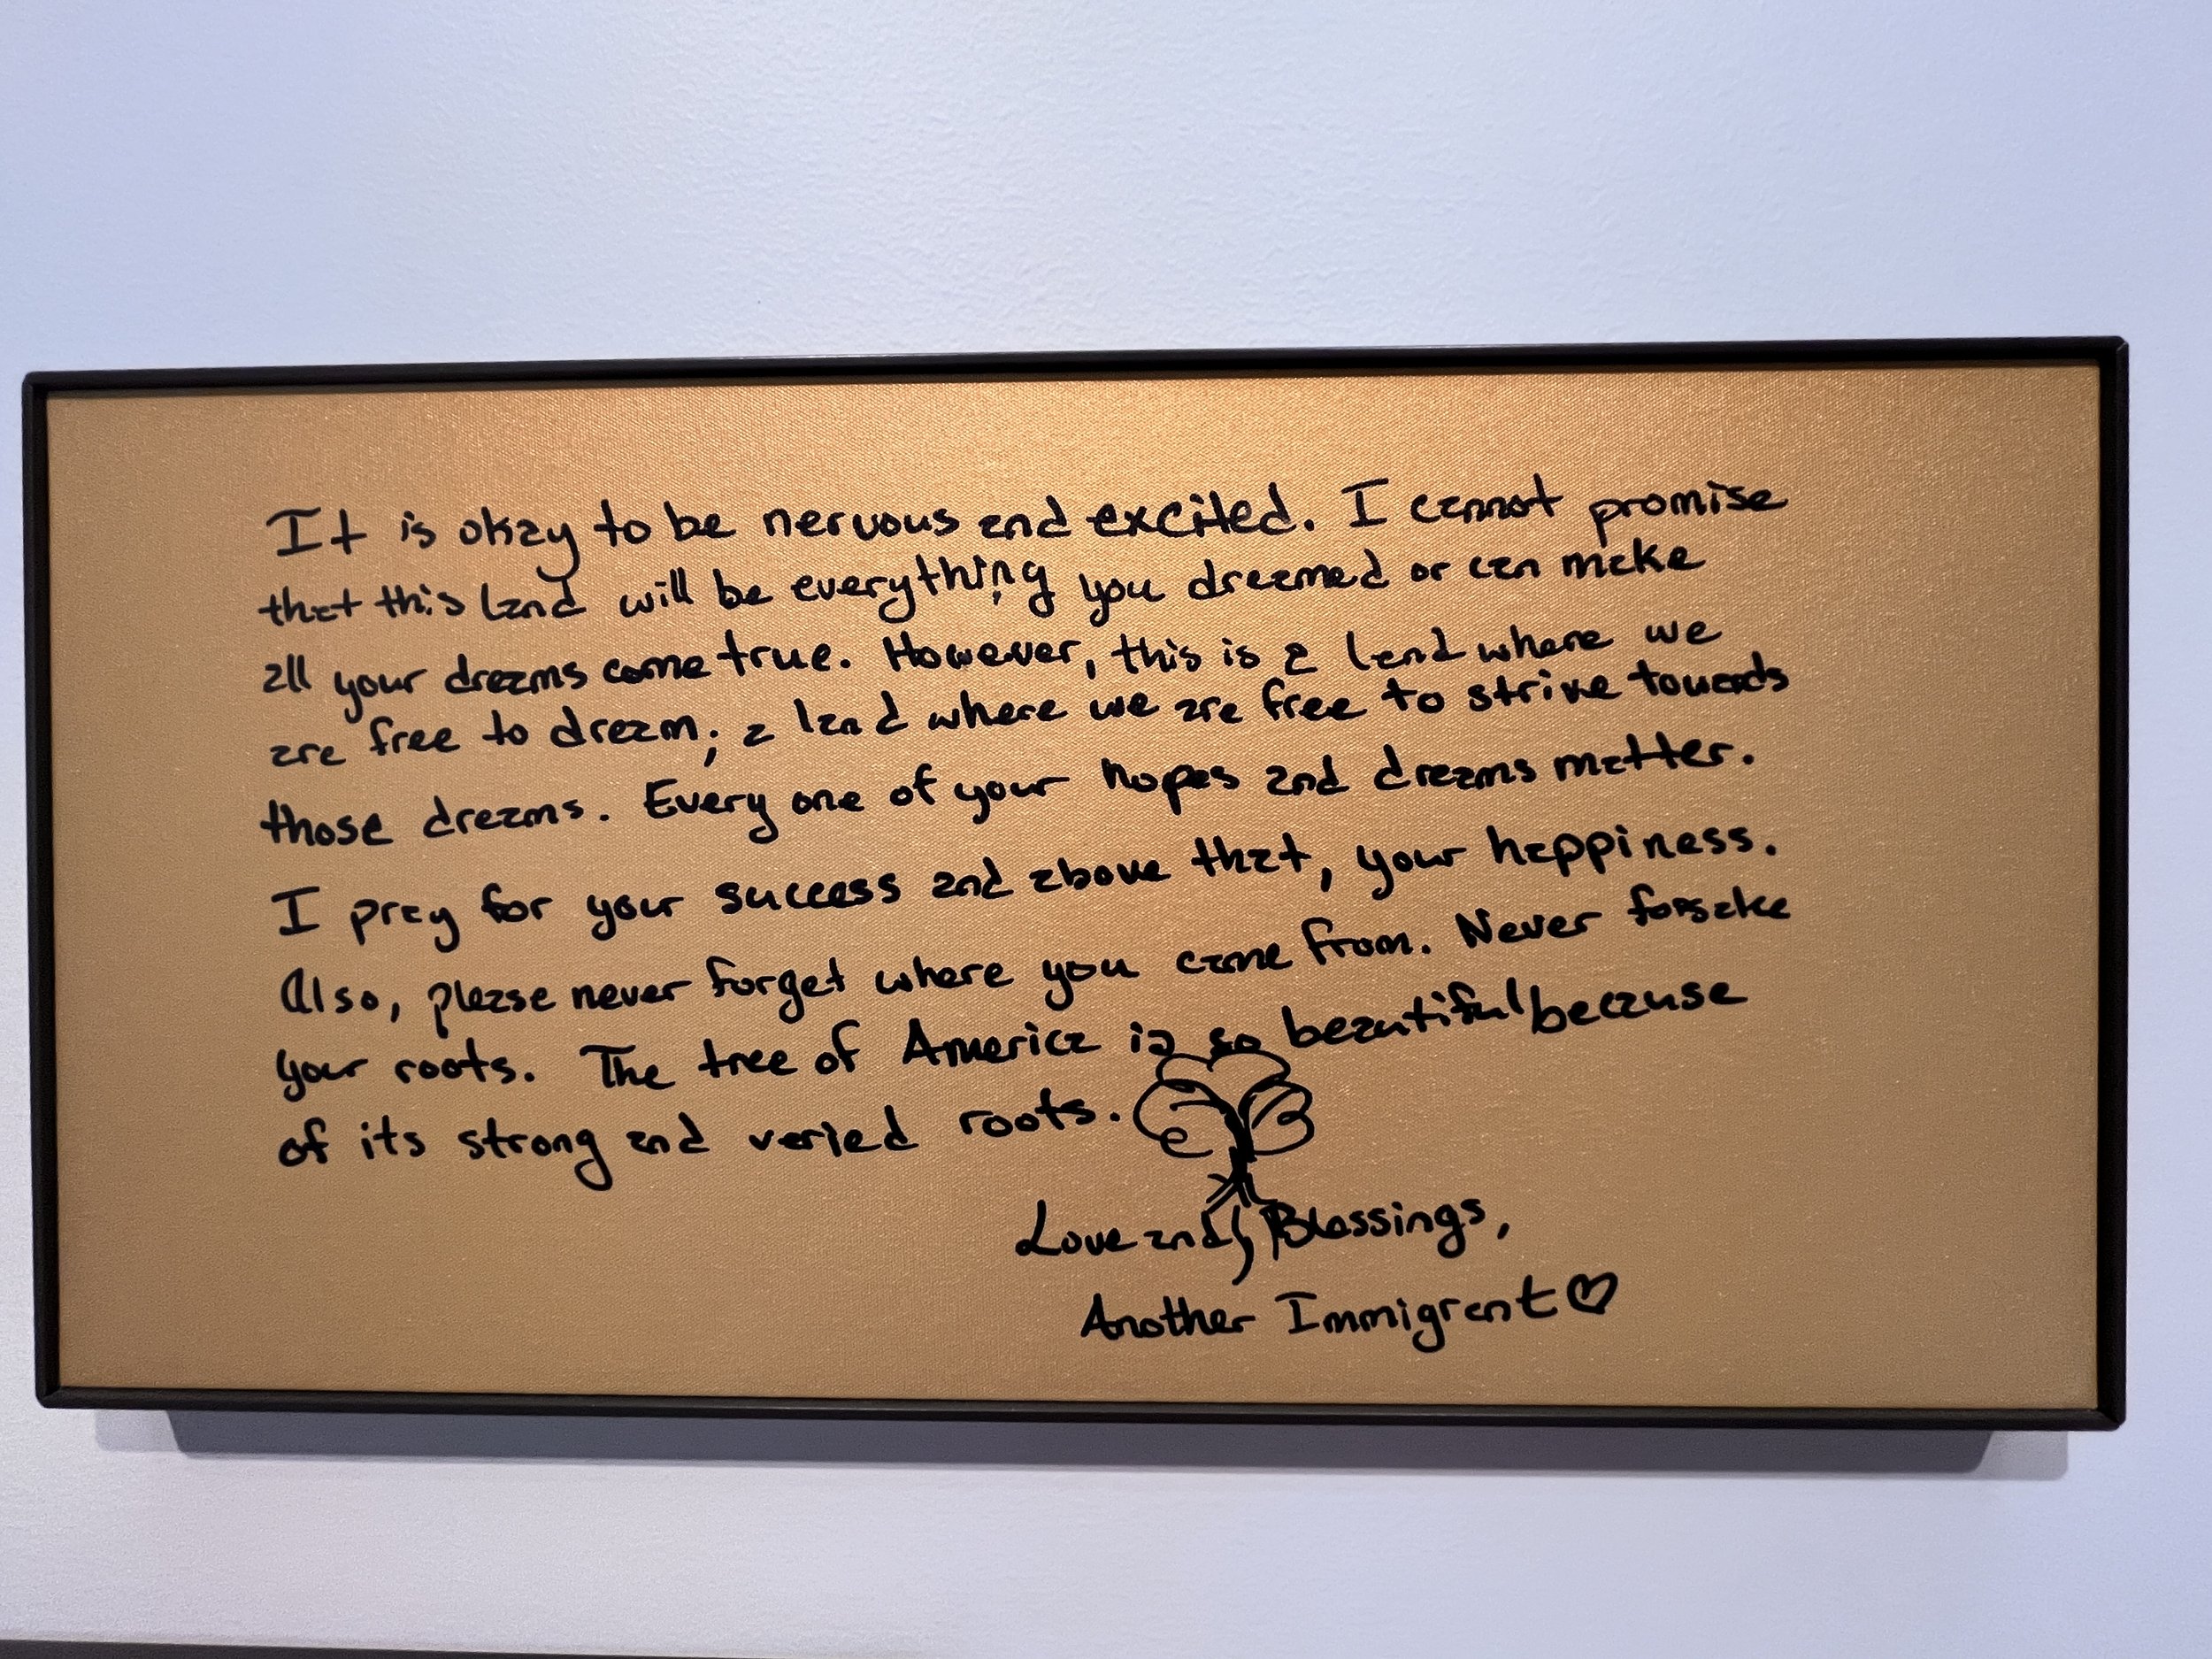 It is okay to be nervous and excited. I cannot promise
that this land will be everything you dreamed or can make
all your dreams come true. However, this is a land where we
are free to dream; a land where we are free to strive towards
those dreams. Every one of your hopes and dreams matter.
I pray for your success and above that, your happiness.
Also, please never forget where you came from. Never forsake
your roots. The tree of America is so beautiful because
of its strong and varied roots.
Love and Blessings,
Another Immigrant♡